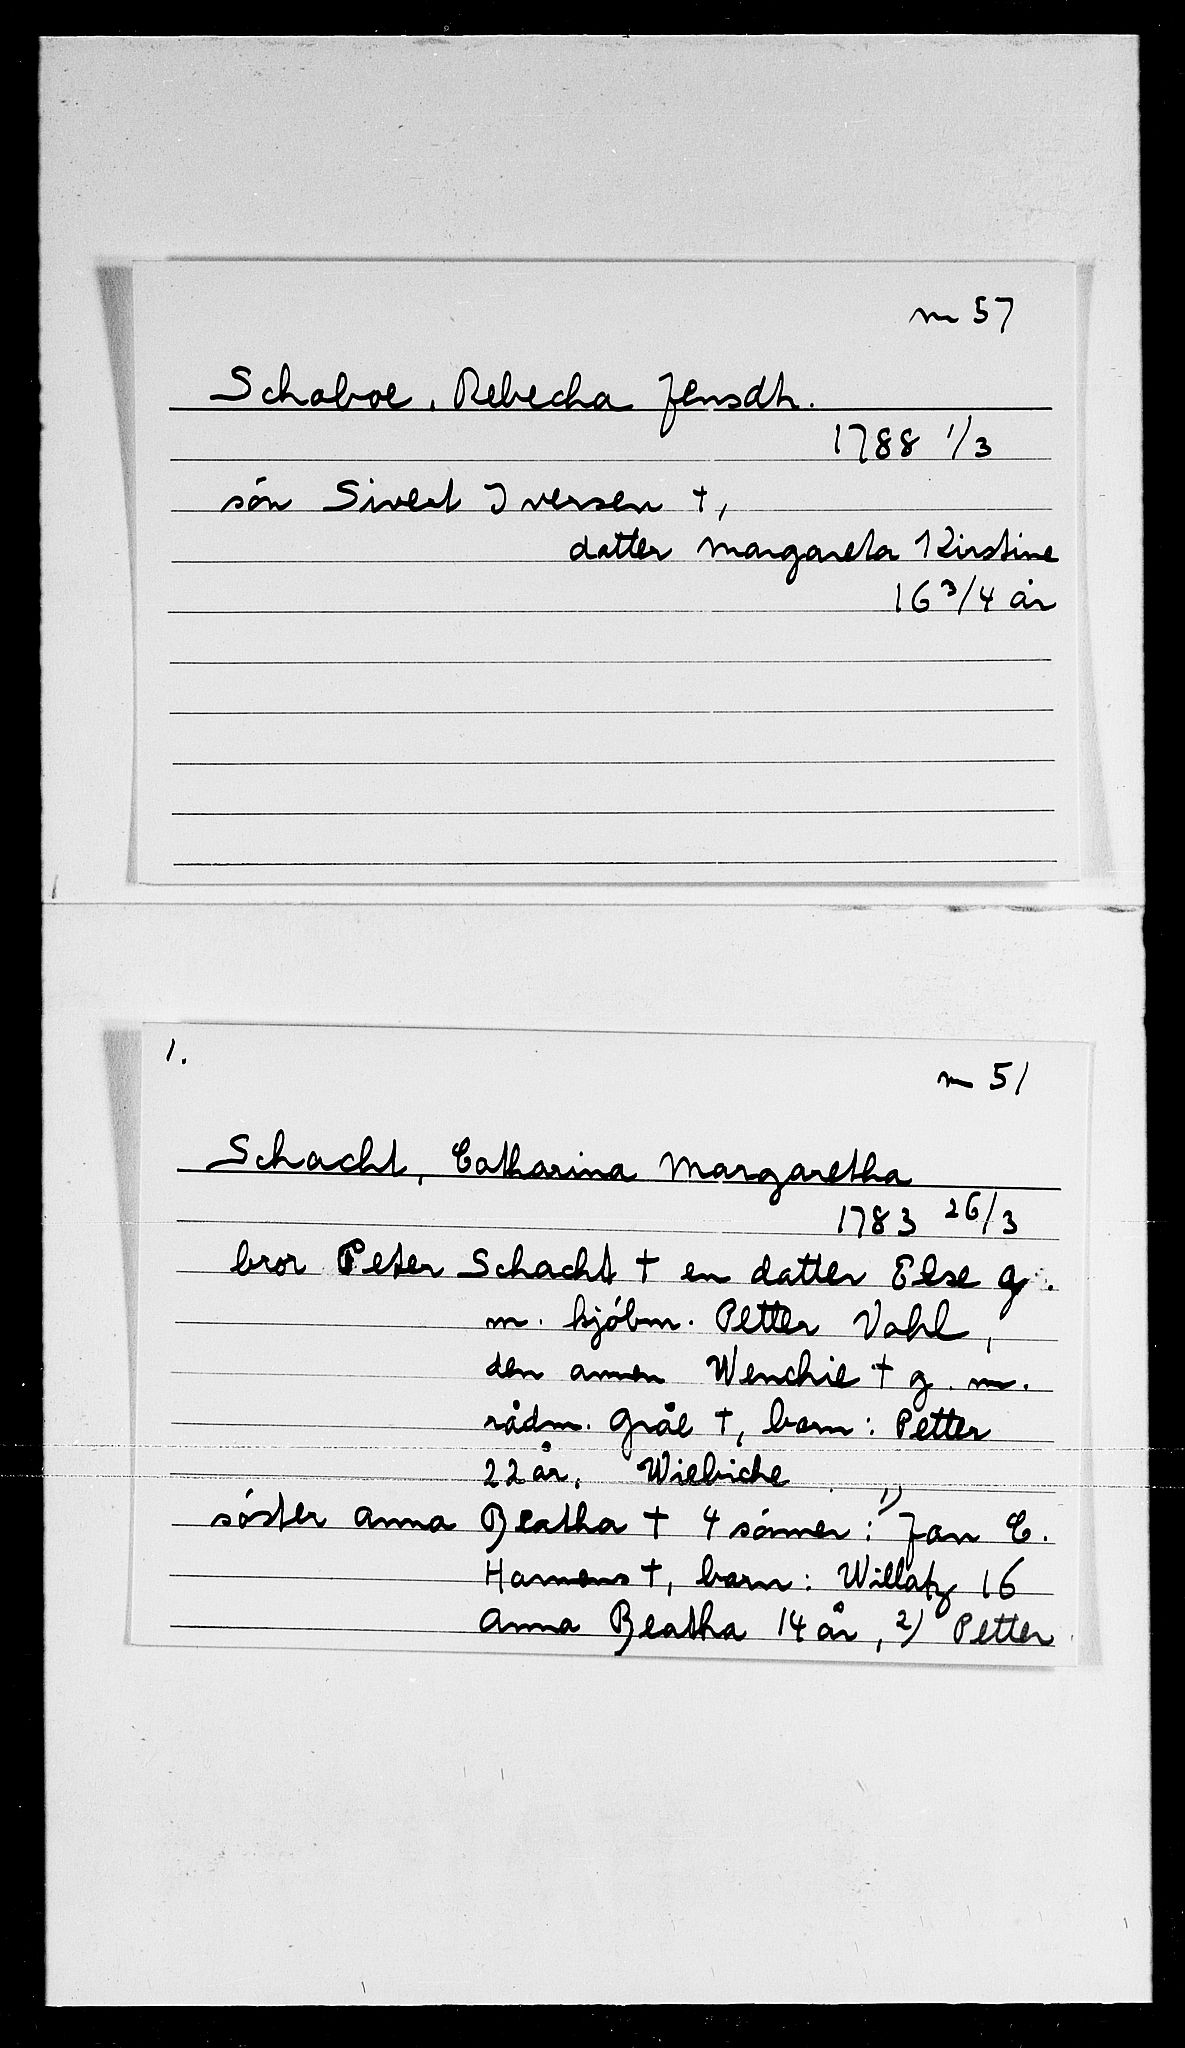 m 57
Schaboe, Rebecha Jensdtr.
1788 1/3
sön Sivert Iversen †,
datter Margareta Kirstine
16 3/4 år
1.
m 51
Schacht, Catharina Margaretha
1783 26/3
bror Peter Schacht † en datter Else g.
m. kjöbm. Petter Vahl,
den annen Wenchie † g. m.
rådm. Gräl †, barn: Petter
22 år, Wiebiche
söster Anna Beatha † 4 sönner: 1) Jan C.
Hamens †, barn: Willatz 16
Anna Beatha 14 år, 2) Petter